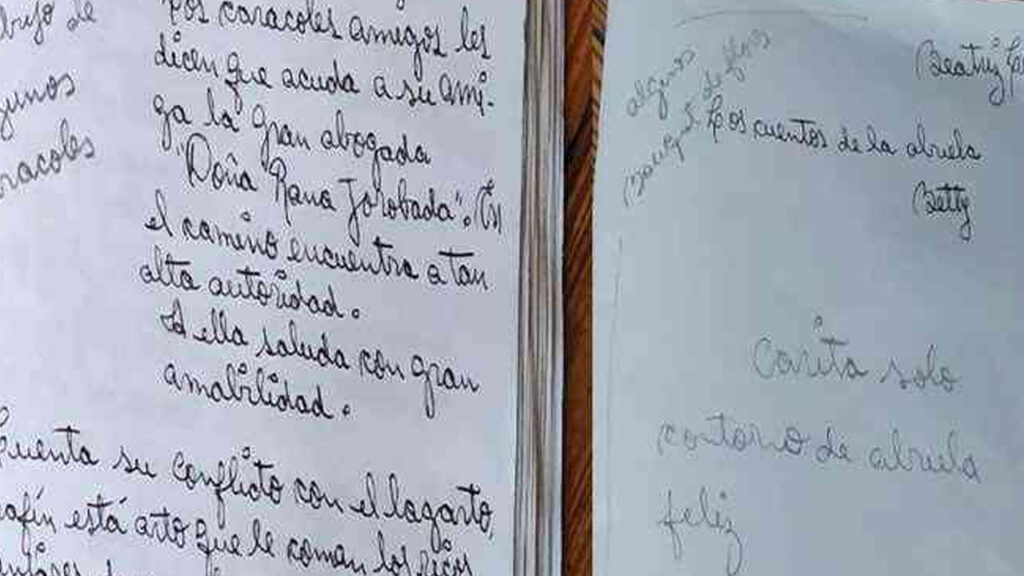 Los caracoles amigos les
dicen que acuda a su ami-
ga la gran abogada
"Doña Rana Jorobada". En
el camino encuentra a tan
alta autoridad.
A ella saluda con gran
amabilidad.
Cuenta su conflicto con el lagarto,
está arto que le coman los
de
caracoles
algunos
de
Beatriz
Los cuentos de la abuela
Betty
Carita solo
contorno de abuela
feliz